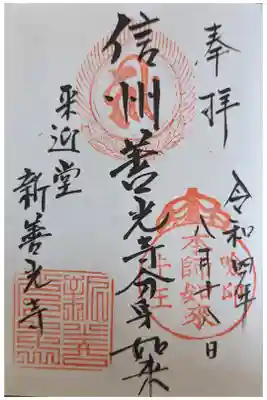 奉拝
令和四年
八月十八日
信州善光寺分身如来
来迎堂
新善光寺
本師如来